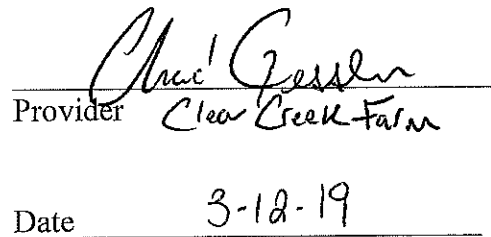 Chad Gessler
Provider Clear Creek Farm
Date 3-12-19